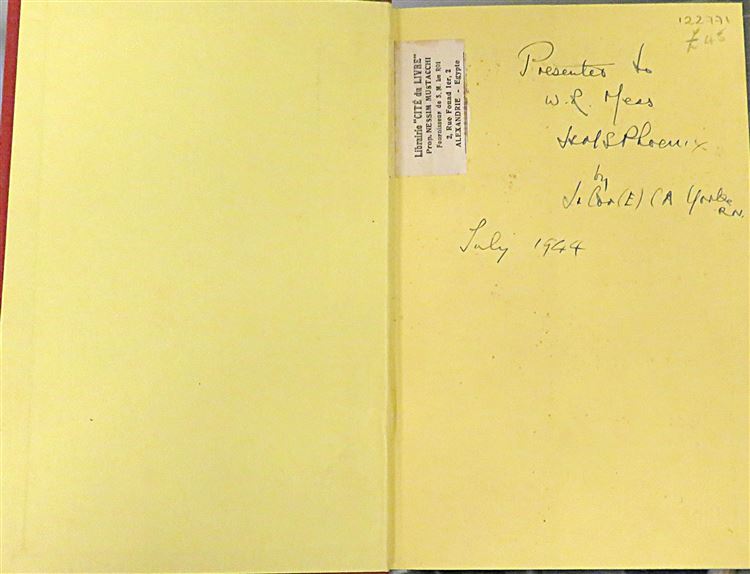 122771
£45
Librairie "CITÉ du LIVRE"
Prop. NESSIM MUSTACCHI
Fournisseur de S. M. le ROI
2, Rue Fouad 1er, 2
ALEXANDRIE - Egypte
Presented to
W.R. Mess
HMS Phoenix
by
(E) CA Yorke
R.N.
July 1944